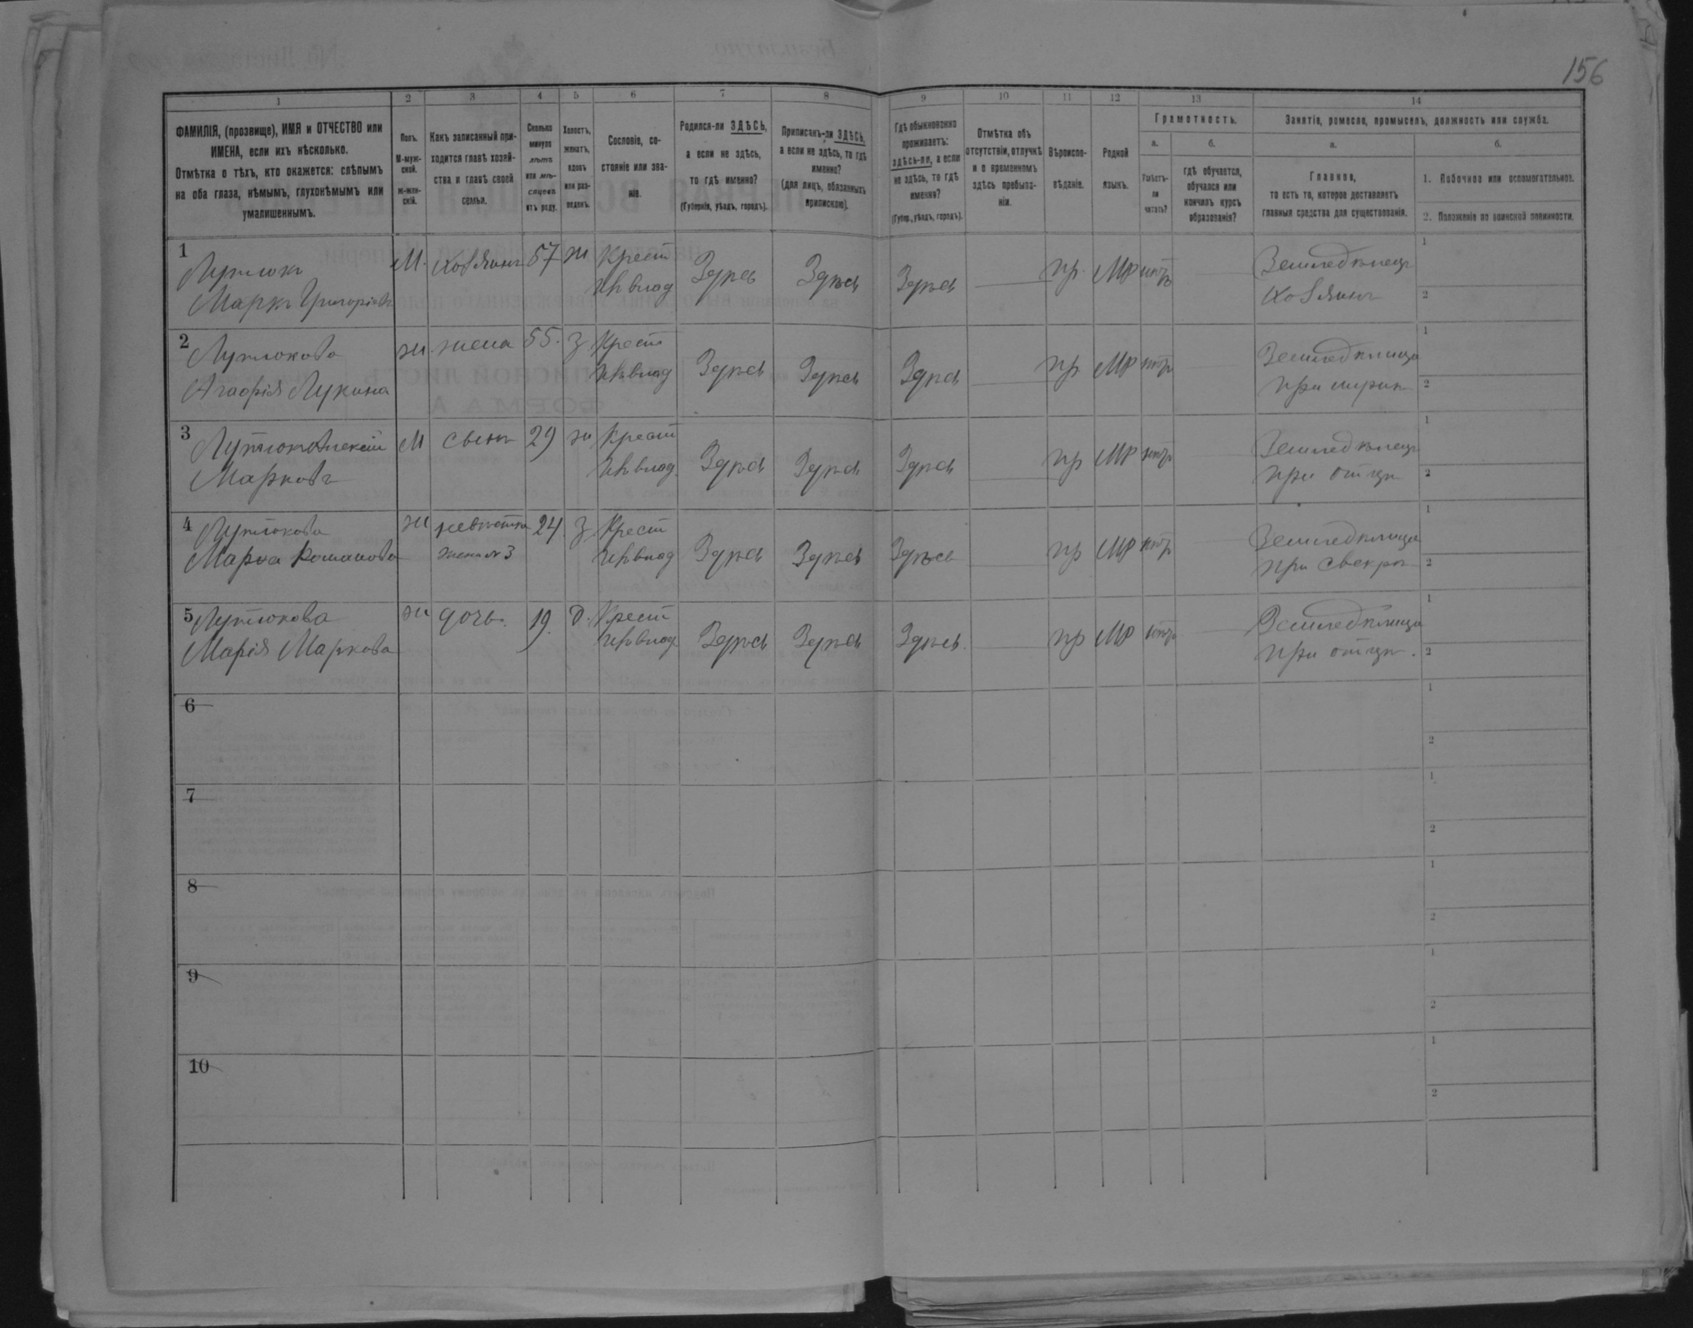 156
1 2 3 4 5 6 7 8 9 10 11 12 13 14
ФАМИЛІЯ, (прозвище), ИМЯ и ОТЧЕСТВО или
ИМЕНА, если ихъ нѣсколько.
Отмѣтка о тѣхъ, кто окажется: слѣпымъ
на оба глаза, нѣмымъ, глухонѣмымъ или
умалишеннымъ.
Полъ.
М-муж-
ской.
ж-жен-
скій.
Какъ записанный при-
ходится главѣ хозяй-
ства и главѣ своей
семьи.
Сколько
минуло
лѣтъ
или мѣ-
сяцевъ
отъ роду.
Холостъ,
женатъ,
вдовъ
или раз-
веденъ.
Сословіе, со-
стояніе или зва-
ніе.
Родился-ли ЗДѢСЬ,
а если не здѣсь,
то гдѣ именно?
(Губернія, уѣздъ, городъ).
Приписанъ-ли ЗДѢСЬ,
а если не здѣсь, то гдѣ
именно?
(для лицъ, обязанныхъ
припискою).
Гдѣ обыкновенно
проживаетъ:
здѣсь-ли, а если
не здѣсь, то гдѣ
именно?
(Губер., уѣздъ, городъ).
Отмѣтка объ
отсутствіи, отлучкѣ
и о временномъ
здѣсь пребыва-
ніи.
Вѣроиспо-
вѣданіе.
Родной
языкъ.
Грамотность.
а.
Умѣетъ-
ли
читать?
б.
гдѣ обучается,
обучался или
кончилъ курсъ
образованія?
Занятіе, ремесло, промыселъ, должность или служба.
а.
Главное,
то есть то, которое доставляетъ
главныя средства для существованія.
б.
1. Побочное или вспомогательное.
2. Положеніе по воинской повинности.
1 Лутюкъ М. Хозяинъ 57 ж Крест Здѣсь Здѣсь Здѣсь пр. МР нѣтъ Земледѣлецъ 1
Маркъ Григорiевъ Хозяинъ 2
2 Лутюкова ж жена 55. з Крест Здѣсь Здѣсь Здѣсь пр МР нѣтъ Земледѣлица 1
Агафія Лукина при мужѣ 2
3 Лутюкъ Алексій М сынъ 29 ж Крест Здѣсь Здѣсь Здѣсь пр МР нѣтъ Земледѣлецъ 1
Марковъ при отцѣ 2
4 Лутюкова ж невѣстка 24 з Крест Здѣсь Здѣсь Здѣсь пр МР нѣтъ Земледѣлица 1
Романова жена № 3 при свекрѣ 2
5 Лутюкова ж дочь. 19. д. Крест Здѣсь Здѣсь Здѣсь пр МР нѣтъ Земледѣлица 1
Марія Маркова при отцѣ. 2
6 1
2
7 1
2
8 1
2
9 1
2
10 1
2